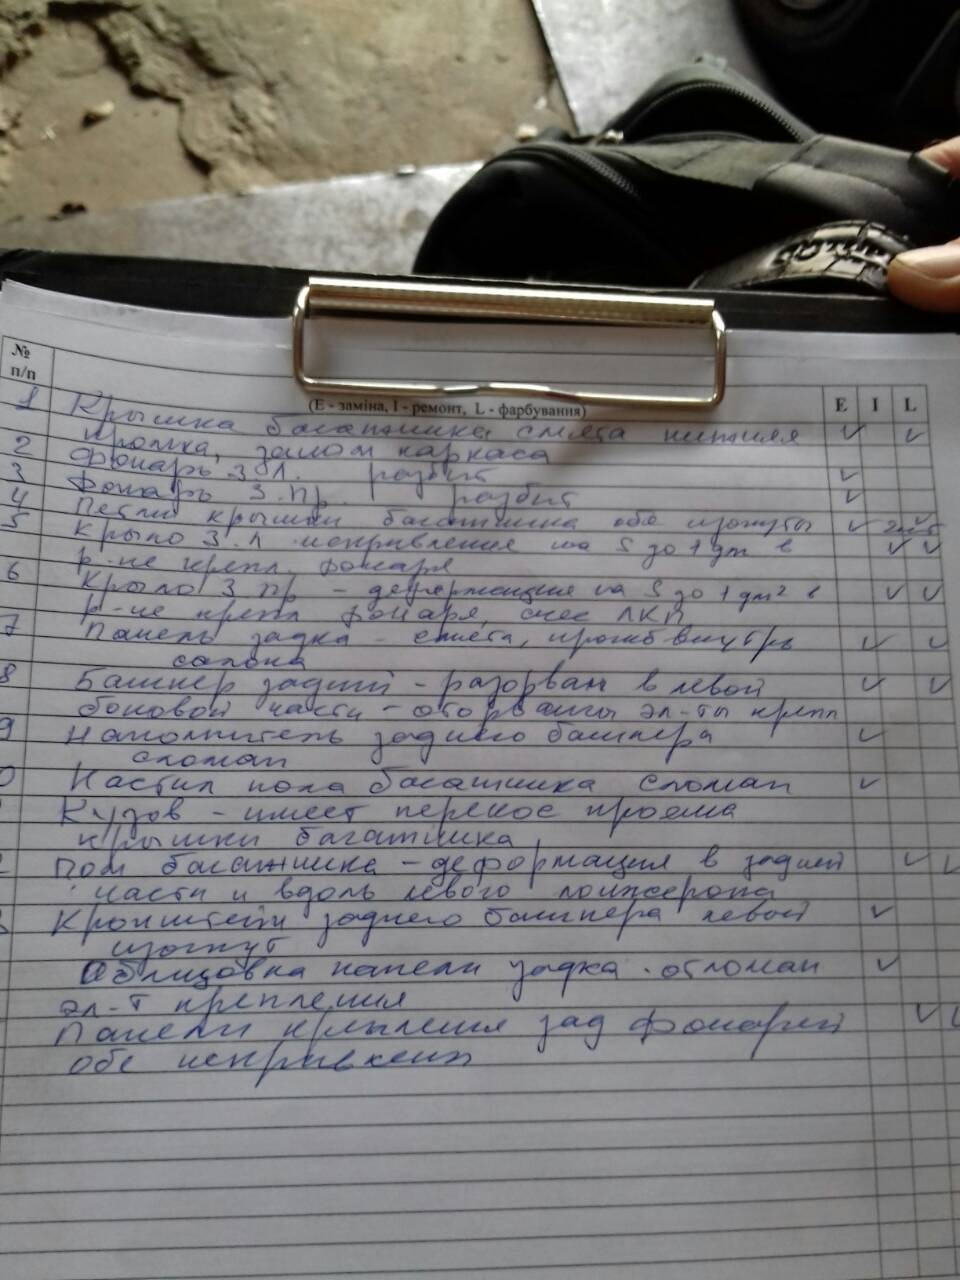 № п/п
(Е - заміна, І - ремонт, L - фарбування) E I L
1 Крышка багажника смята нижняя
кромка, залом каркаса
2 Фонарь З.Л. разбит
3 Фонарь З.пр. разбит
4 Петли крышки багажника обе изогнуты
5 Крыло З.Л искривление на S до 1 дм в
р-не крепл. фонаря
6 Крыло З пр - деформация на S до 1 дм² в
р-не крепл фонаря, скес ЛКП
7 Панель задка - смята, прогиб внутрь
салона
8 Бампер задний - разорван в левой
боковой части - оторваны эл-ты крепл
9 Наполнитель заднего бампера
сломан
0 Настил пола багажника сломан
Кузов - имеет перекос проема
крышки багажника
Пол багажника - деформация в задней
части и вдоль левого лонжерона
Кронштейн заднего бампера левой
изогнут
Облицовка панели задка. отломан
эл-т крепления
Панели крепления зад фонарей
обе искривлены